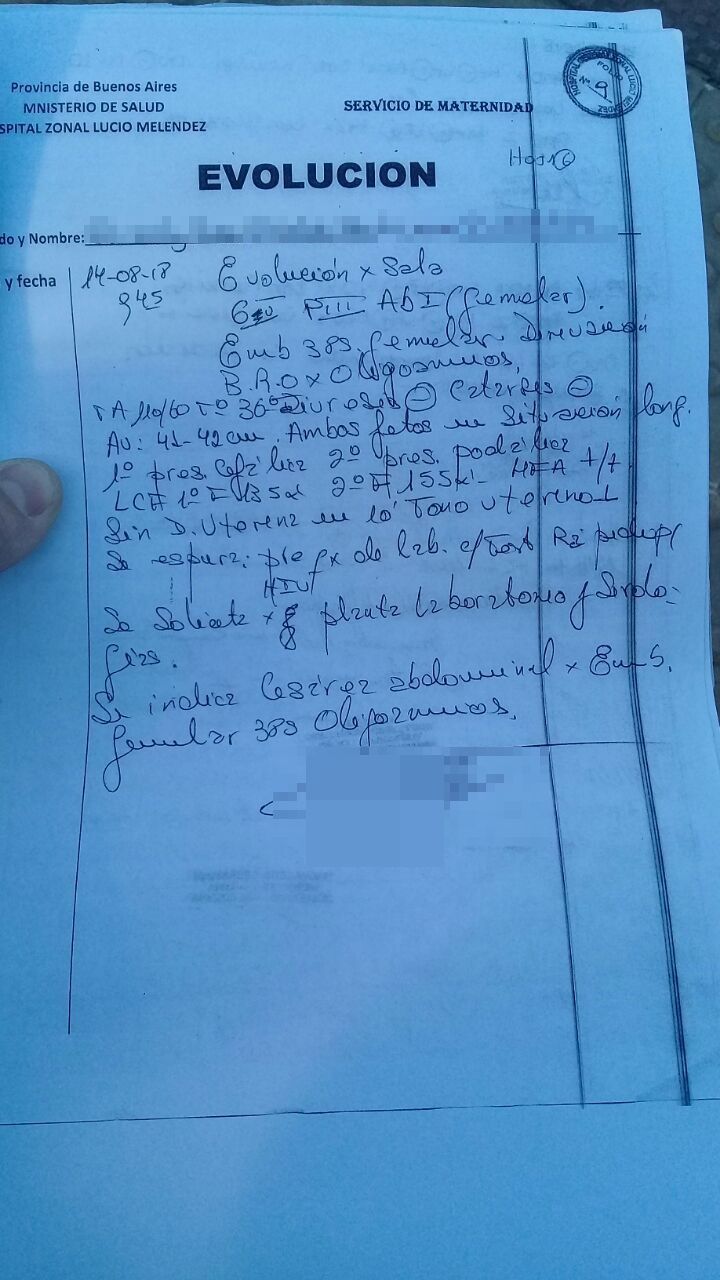 Provincia de Buenos Aires
MNISTERIO DE SALUD
SPITAL ZONAL LUCIO MELENDEZ
SERVICIO DE MATERNIDAD
HOSPITAL ZONAL LUCIO MELENDEZ
FOLIO
Nº 9
EVOLUCION
do y Nombre:
y fecha
14-08-18
945
Evolución x Sala
PIII AbI (gemelar).
Emb 38s. gemelar.
B.R.O x Oligoamnios,
TA 110/60 Tº 36º Diuresis ⊖ Catarsis ⊖
AU: 41-42cm. Ambos fetos en situación long.
1º pres. Cefálica 2º pres. podálica
LCF 1º F 135x' 2º F 155x' MFA +/+.
Sin D. Uterina Tono uterino
Se espera de lab.
HIV
Se solicita x planta laboratorio y Serolo-
gías.
Se indica Cesárea abdominal x Emb.
gemelar 38s Oligoamnios.